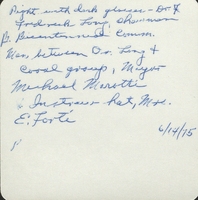 Right with dark glasses - Dr. J
Frederick Long, chairman
B. Bicentennial Comm.
Man between Dr. Long &
coral group, Mayor
Michael Marotti
In straw hat, Mrs.
E. Forté
6/14/75